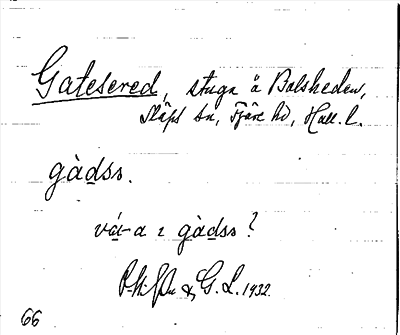 Gatesered, stuga å Bolsheden,
Släps sn, Fjäre hd, Hall. l.
gàdsɿ.
vár a ɿ gàdsɿ?
& G. L. 1932.
66